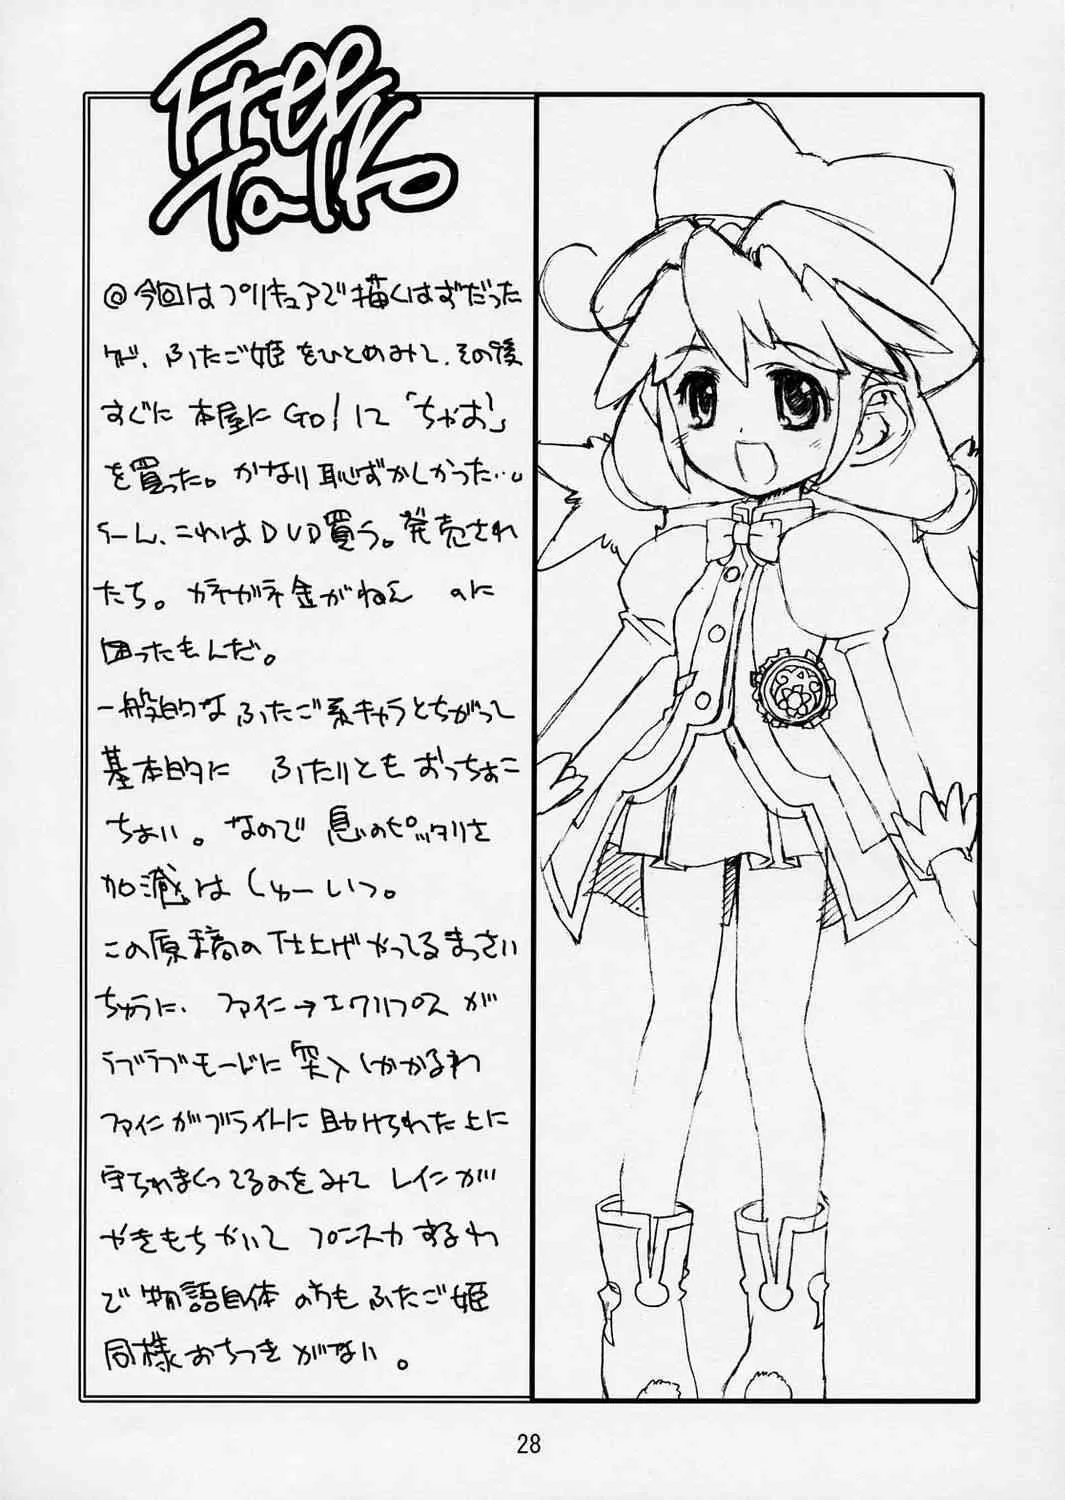 Free
Talk
@今回はプリキュアで描くはずだった
けど、ふたご姫をひとめみて、その後
すぐに本屋にGO!して「ちゃお!」
を買った。かなり恥ずかしかった…。
うーん、これはDVD買う。発売され
たち。ガネガネ金がねえ のに
困ったもんだ。
一般的なふたご系キャラとちがって
基本的に ふたりともおっちょこ
ちょい。なので息のピッタリさ
加減はしゅーいつ。
この原稿の仕上げやってるまっさい
ちゅうに、ファイン→エクリプスが
ラブラブモードに突入しかかるわ
ファインがブライトに助けられた上に
守られまくってるのをみてレインが
やきもちやいてプンスカするわ
で物語自体のほうもふたご姫
同様おちつきがない。
28